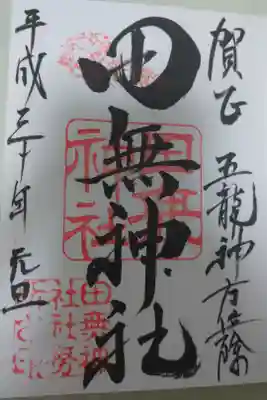 賀正 五龍神方位除
田無神社
平成三十年元旦
田無
神社
田無神
社社務
所之印